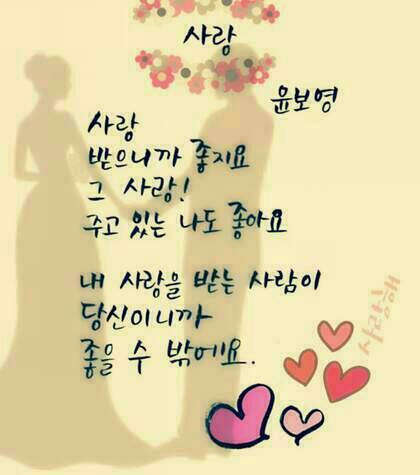 사랑
윤보영
사랑
받으니까 좋지요
그 사랑!
주고 있는 나도 좋아요
내 사랑을 받는 사람이
당신이니까
좋을 수 밖에요.